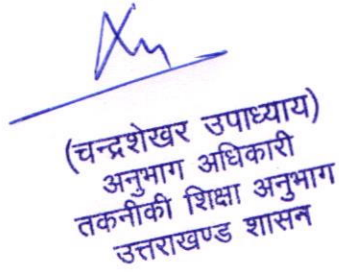 (चन्द्रशेखर उपाध्याय)
अनुभाग अधिकारी
तकनीकी शिक्षा अनुभाग
उत्तराखण्ड शासन